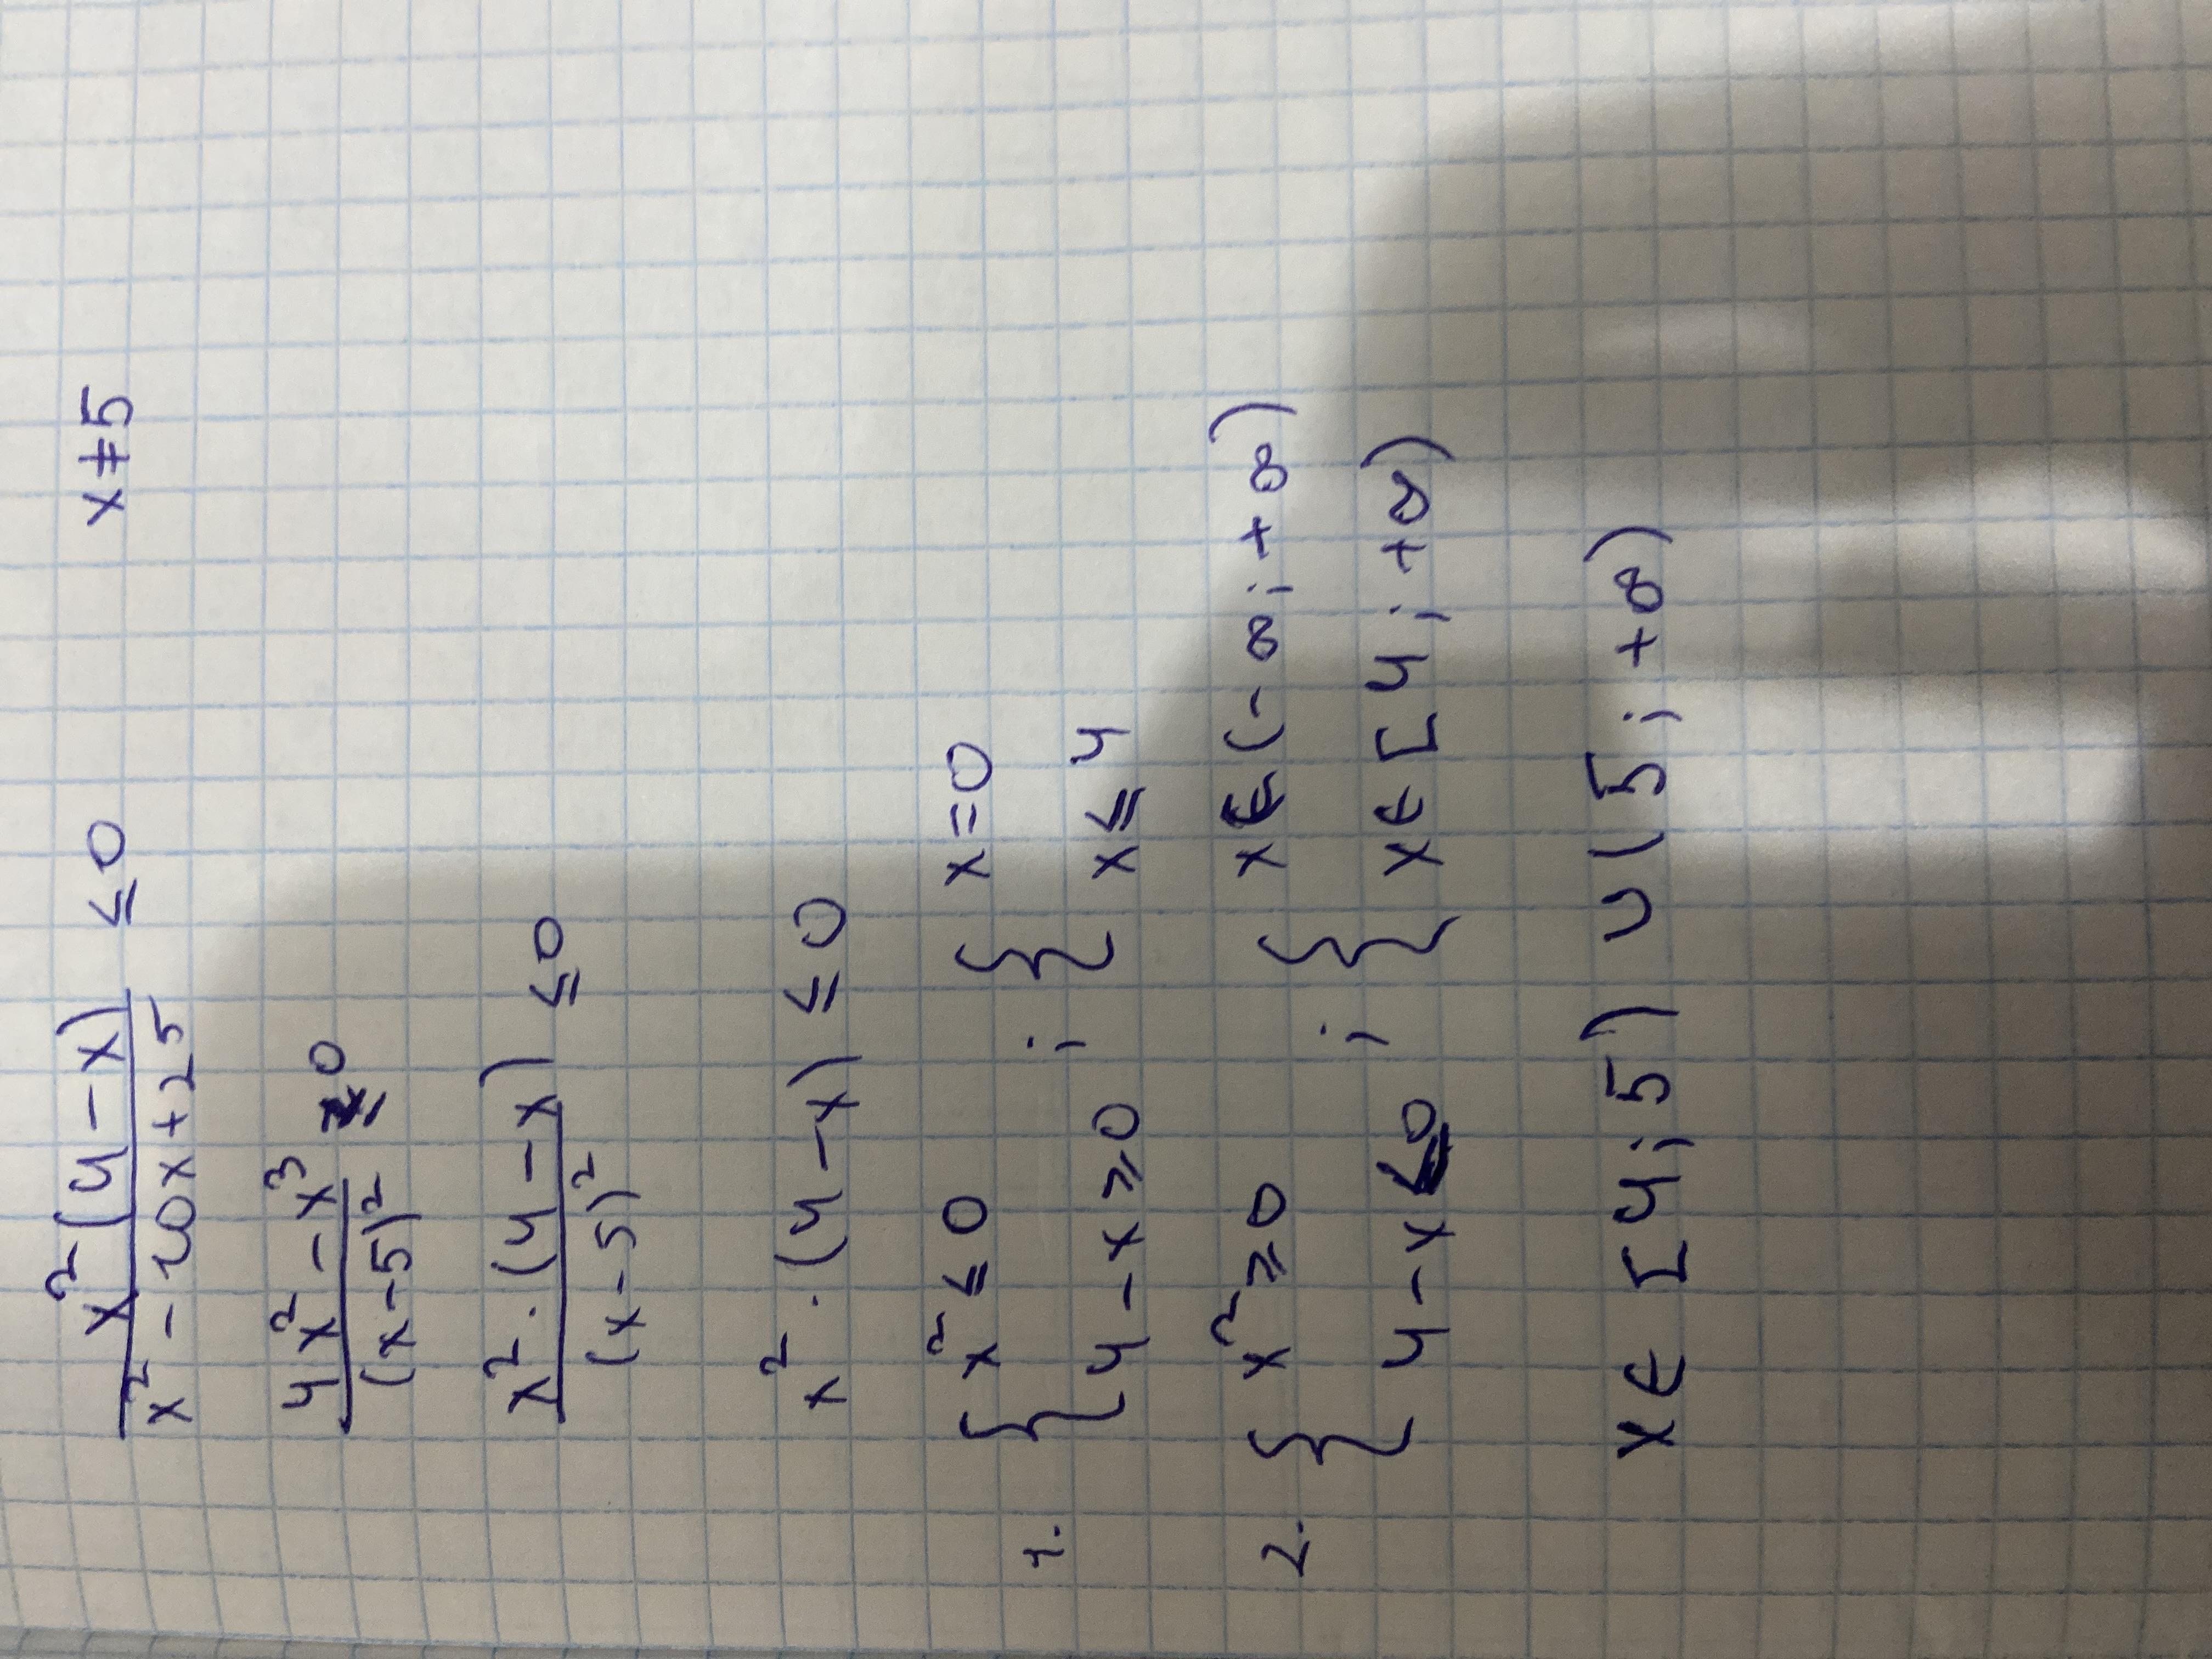 x²(4-x)/(x²-10x+25) ≤ 0 x≠5
(4x²-x³)/(x-5)² ≤ 0
x²·(4-x)/(x-5)² ≤ 0
x²·(4-x) ≤ 0
1. { x² ≤ 0 ; { x=0
4-x ≥ 0 x ≤ 4
2. { x² ≥ 0 ; { x∈(-∞;+∞)
4-x ≤ 0 x∈[4;+∞)
x∈[4;5) ∪ (5;+∞)